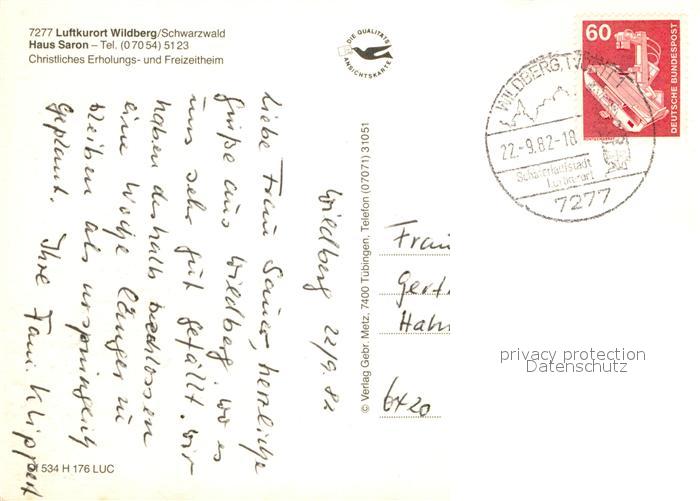 7277 Luftkurort Wildberg/Schwarzwald
Haus Saron – Tel. (0 70 54) 51 23
Christliches Erholungs- und Freizeitheim
DIE QUALITÄTS
ANSICHTSKARTE
60
DEUTSCHE BUNDESPOST
WILDBERG, WÜRTT 1
22.-9.82-18
Schäferlaufstadt
Luftkurort
7277
Wildberg 22/9.82
Liebe Frau Sauer, herzliche
grüße aus Wildberg, wo es
uns sehr gut gefällt. Wir
haben deshalb beschlossen
eine Woche länger zu
bleiben als ursprünglich
geplant. Ihre Fam. Klippert
© Verlag Gebr. Metz, 7400 Tübingen, Telefon (07071) 31051
Frau
Gert
Hahn
6420
privacy protection
Datenschutz
534 H 176 LUC